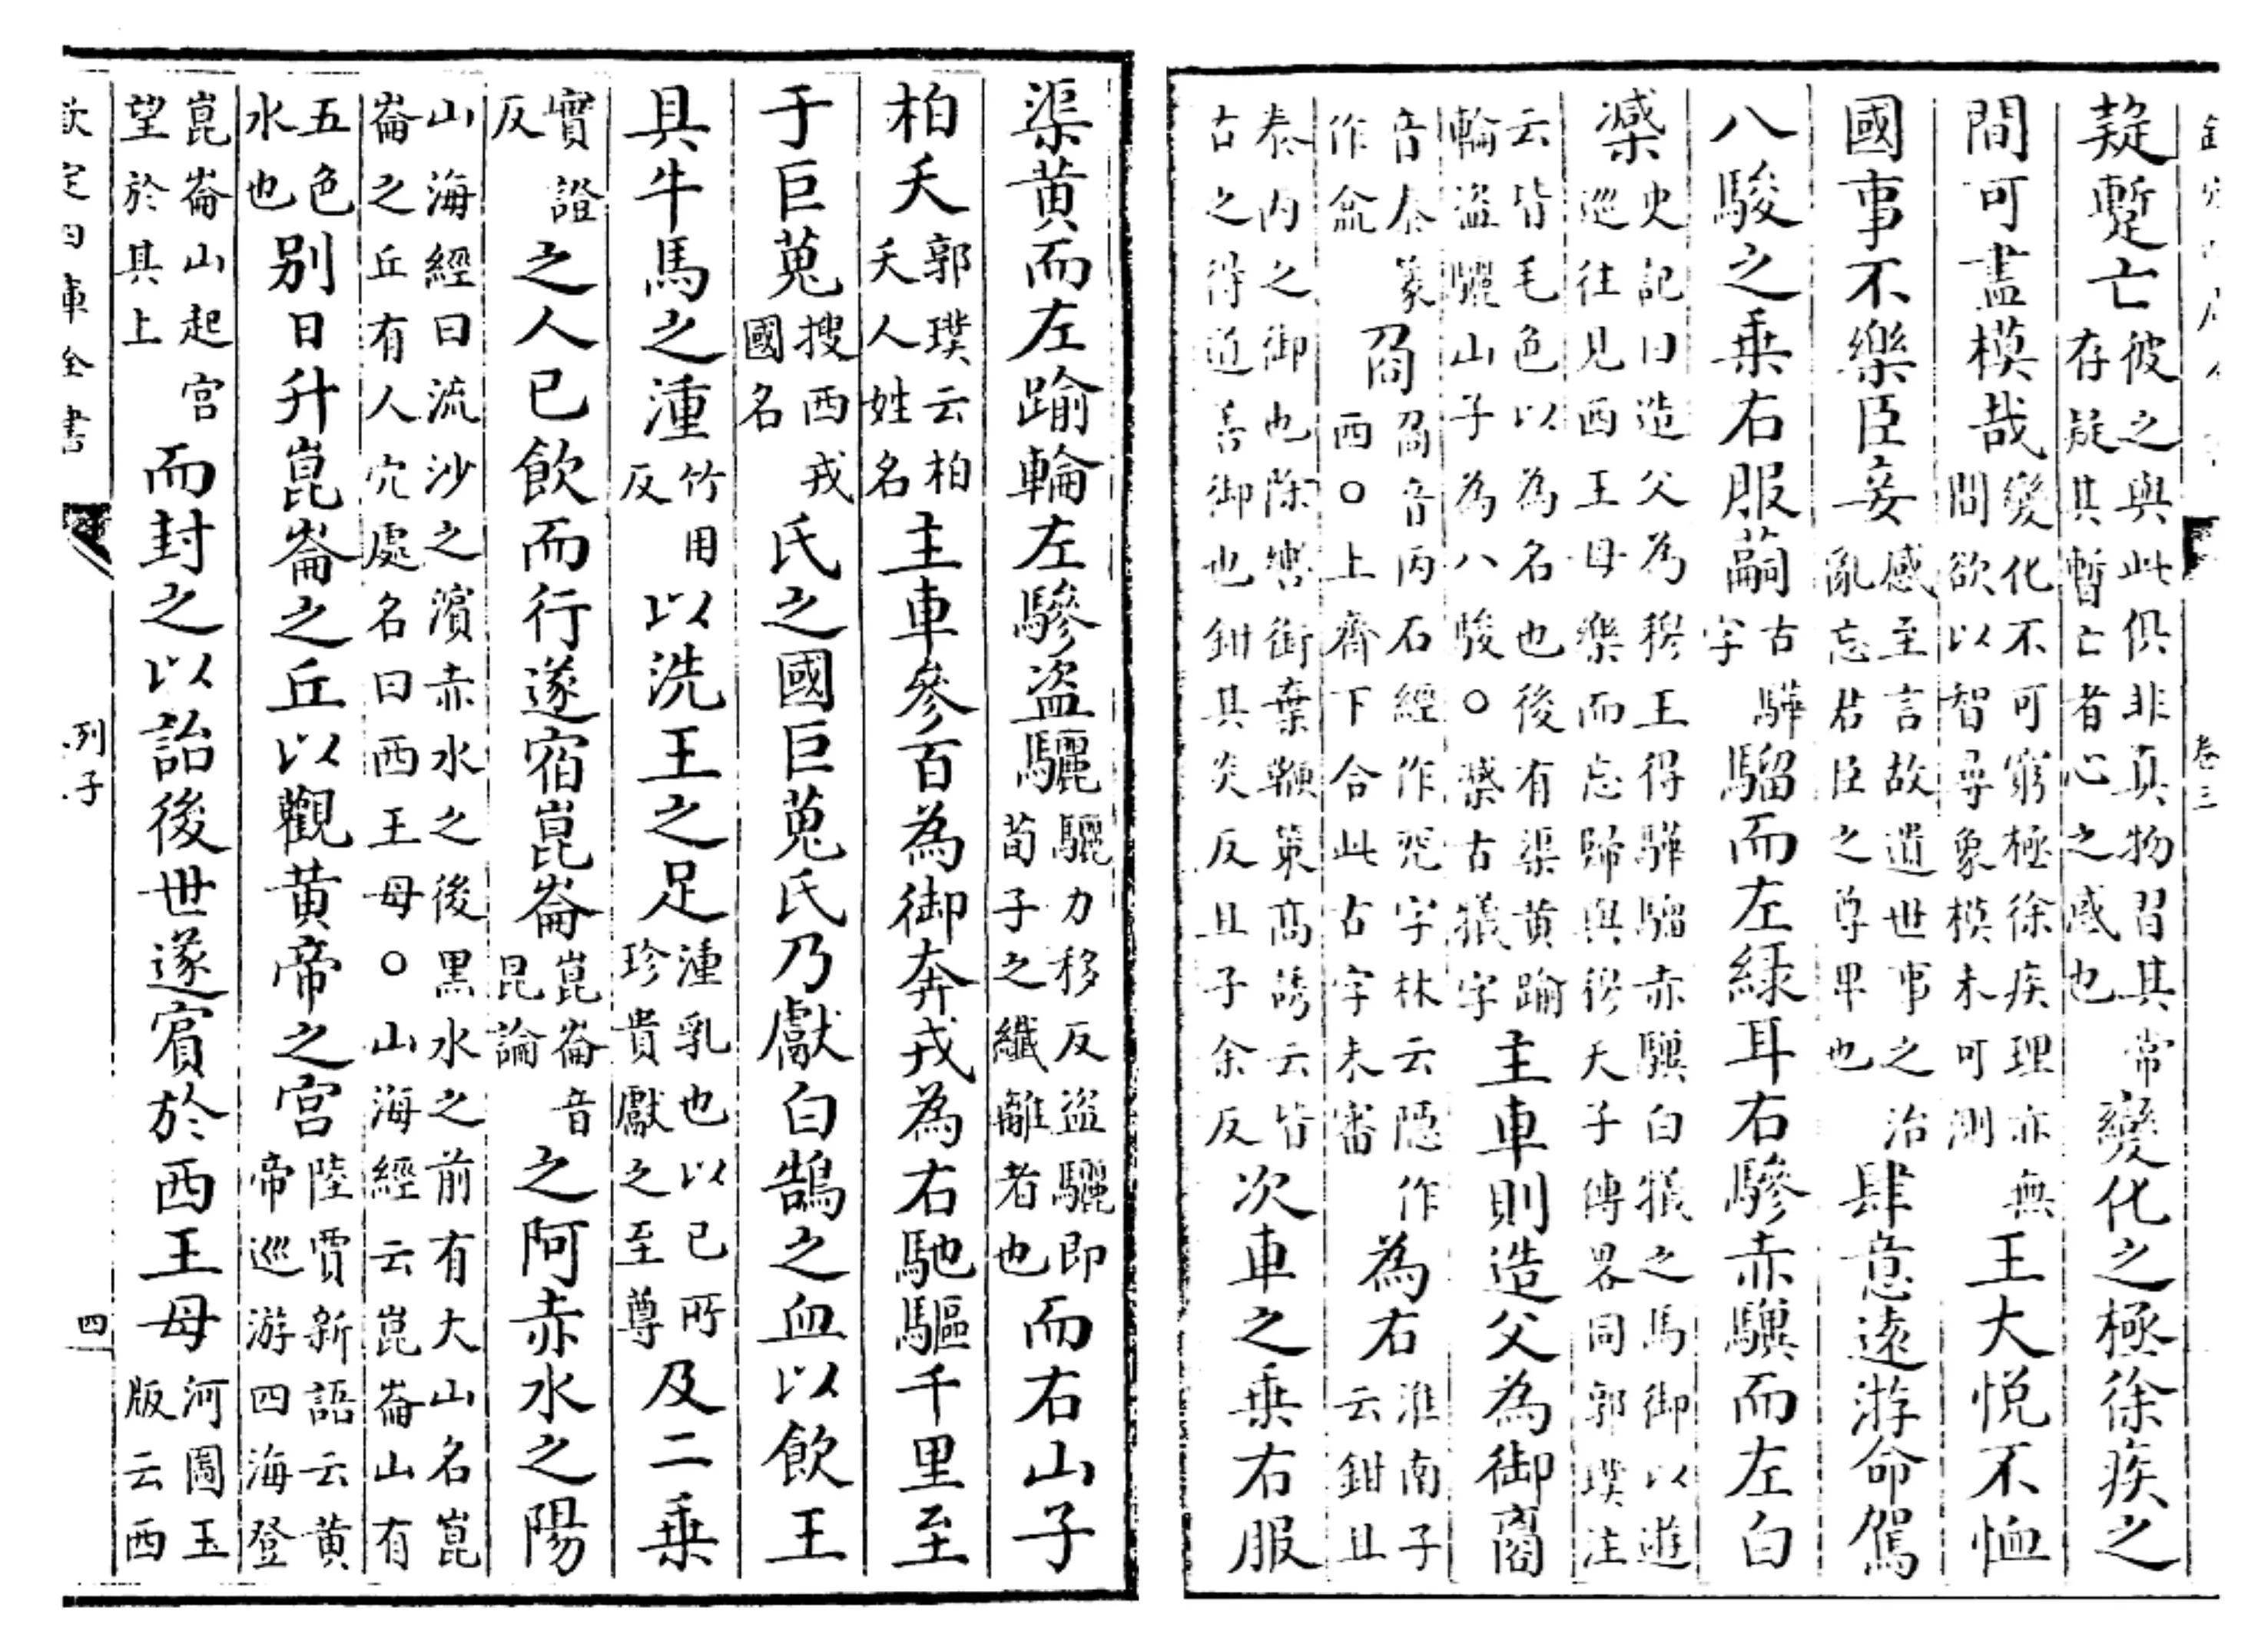 疑蹔亡彼之與此俱非真物習其常存疑其暫亡者心之惑也變化之極徐疾之
間可盡模哉變化不可窮極徐疾理亦無間欲以智尋象模未可測王大悅不恤
國事不樂臣妾感至言故遺世事之治亂忘君臣之尊卑也肆意遠游命駕
八駿之乗右服𩧢古驊字騮而左綠耳右驂赤驥而左白
𣚊史記曰造父為穆王得驊騮赤驥白犠之馬御以遊巡往見西王母樂而忘歸與穆天子傳畧同郭璞注
云皆毛色以為名也後有渠黄踰輪盗驪山子為八駿○𣚊古犠字主車則造父為御𧷿
音泰篆作𠫤㕯㕯音丙石經作咒字林云隱作西○上齊下合此古字未審為右淮南子云鉗且
泰丙之御也除轡銜棄鞭策高誘云皆古之得近善御也鉗其炎反且子余反次車之乗右服
渠黄而左踰輪左驂盗驪驪力移反盗驪即荀子之纖離者也而右山子
柏夭郭璞云柏夭人姓名主車參百為御奔戎為右馳驅千里至
于巨蒐搜西戎國名氏之國巨蒐氏乃獻白鵠之血以飲王
具牛馬之湩竹用反以洗王之足湩乳也以已所珍貴獻之至尊及二乗
實證反之人已飲而行遂宿崑崙崑崙音昆論之阿赤水之陽
山海經曰流沙之濱赤水之後黒水之前有大山名崑崙之丘有人穴處名曰西王母○山海經云崑崙山有
五色水也别日升崑崙之丘以觀黄帝之宫陸賈新語云黄帝巡游四海登
崑崙山起宫望於其上而封之以詒後世遂賓於西王母河圖玉版云西
欽定四庫全書 列子 四
卷三